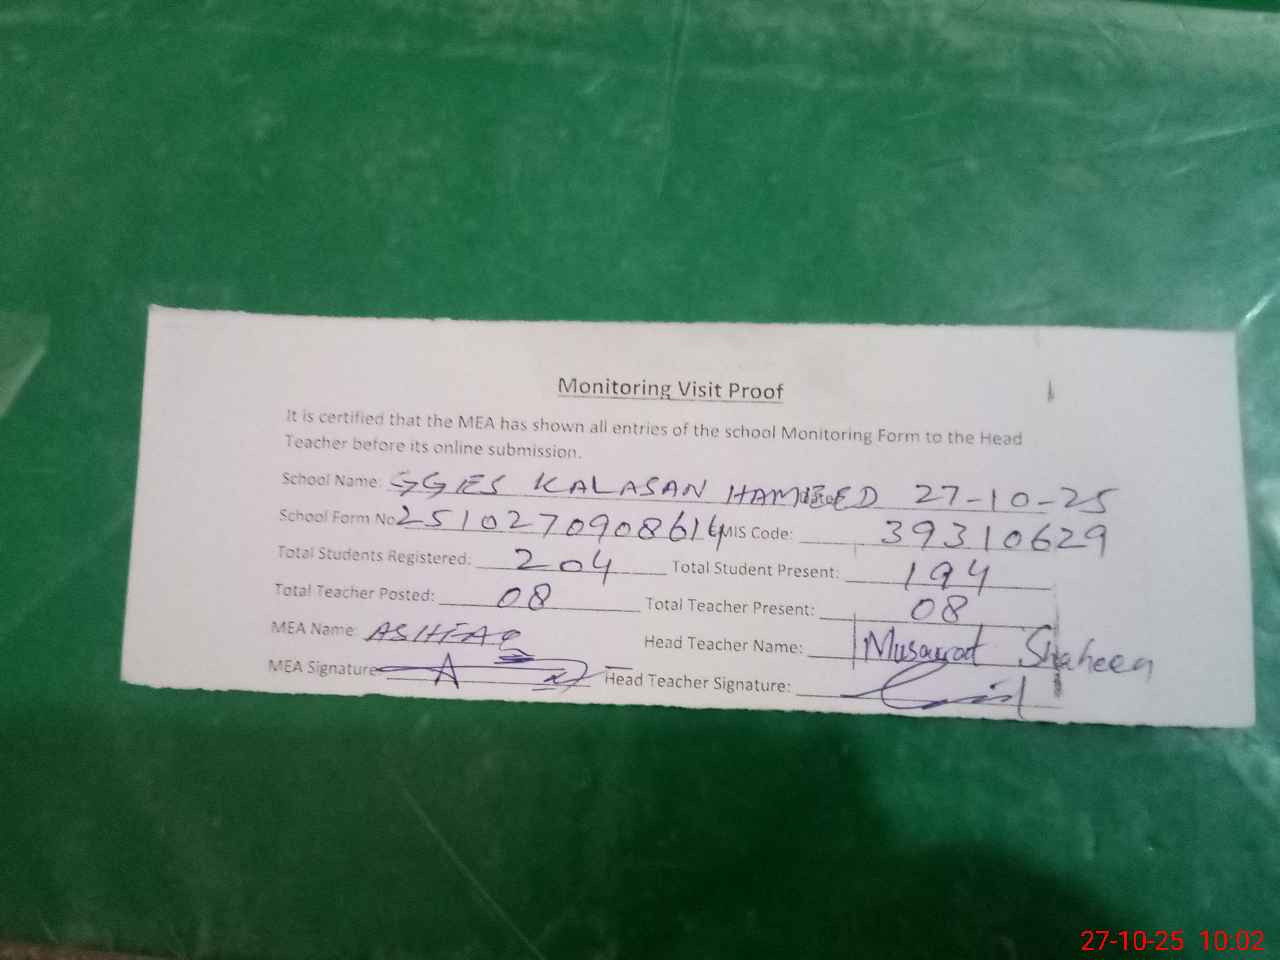 Monitoring Visit Proof
It is certified that the MEA has shown all entries of the school Monitoring Form to the Head
Teacher before its online submission.
School Name: GGES KALASAN HAMEED 27-10-25
School Form No 2510270908614 MIS Code: 39310629
Total Students Registered: 204 Total Student Present: 194
Total Teacher Posted: 08 Total Teacher Present: 08
MEA Name: ASHFAQ Head Teacher Name: Musarrat Shaheen
MEA Signature Head Teacher Signature:
27-10-25 10:02